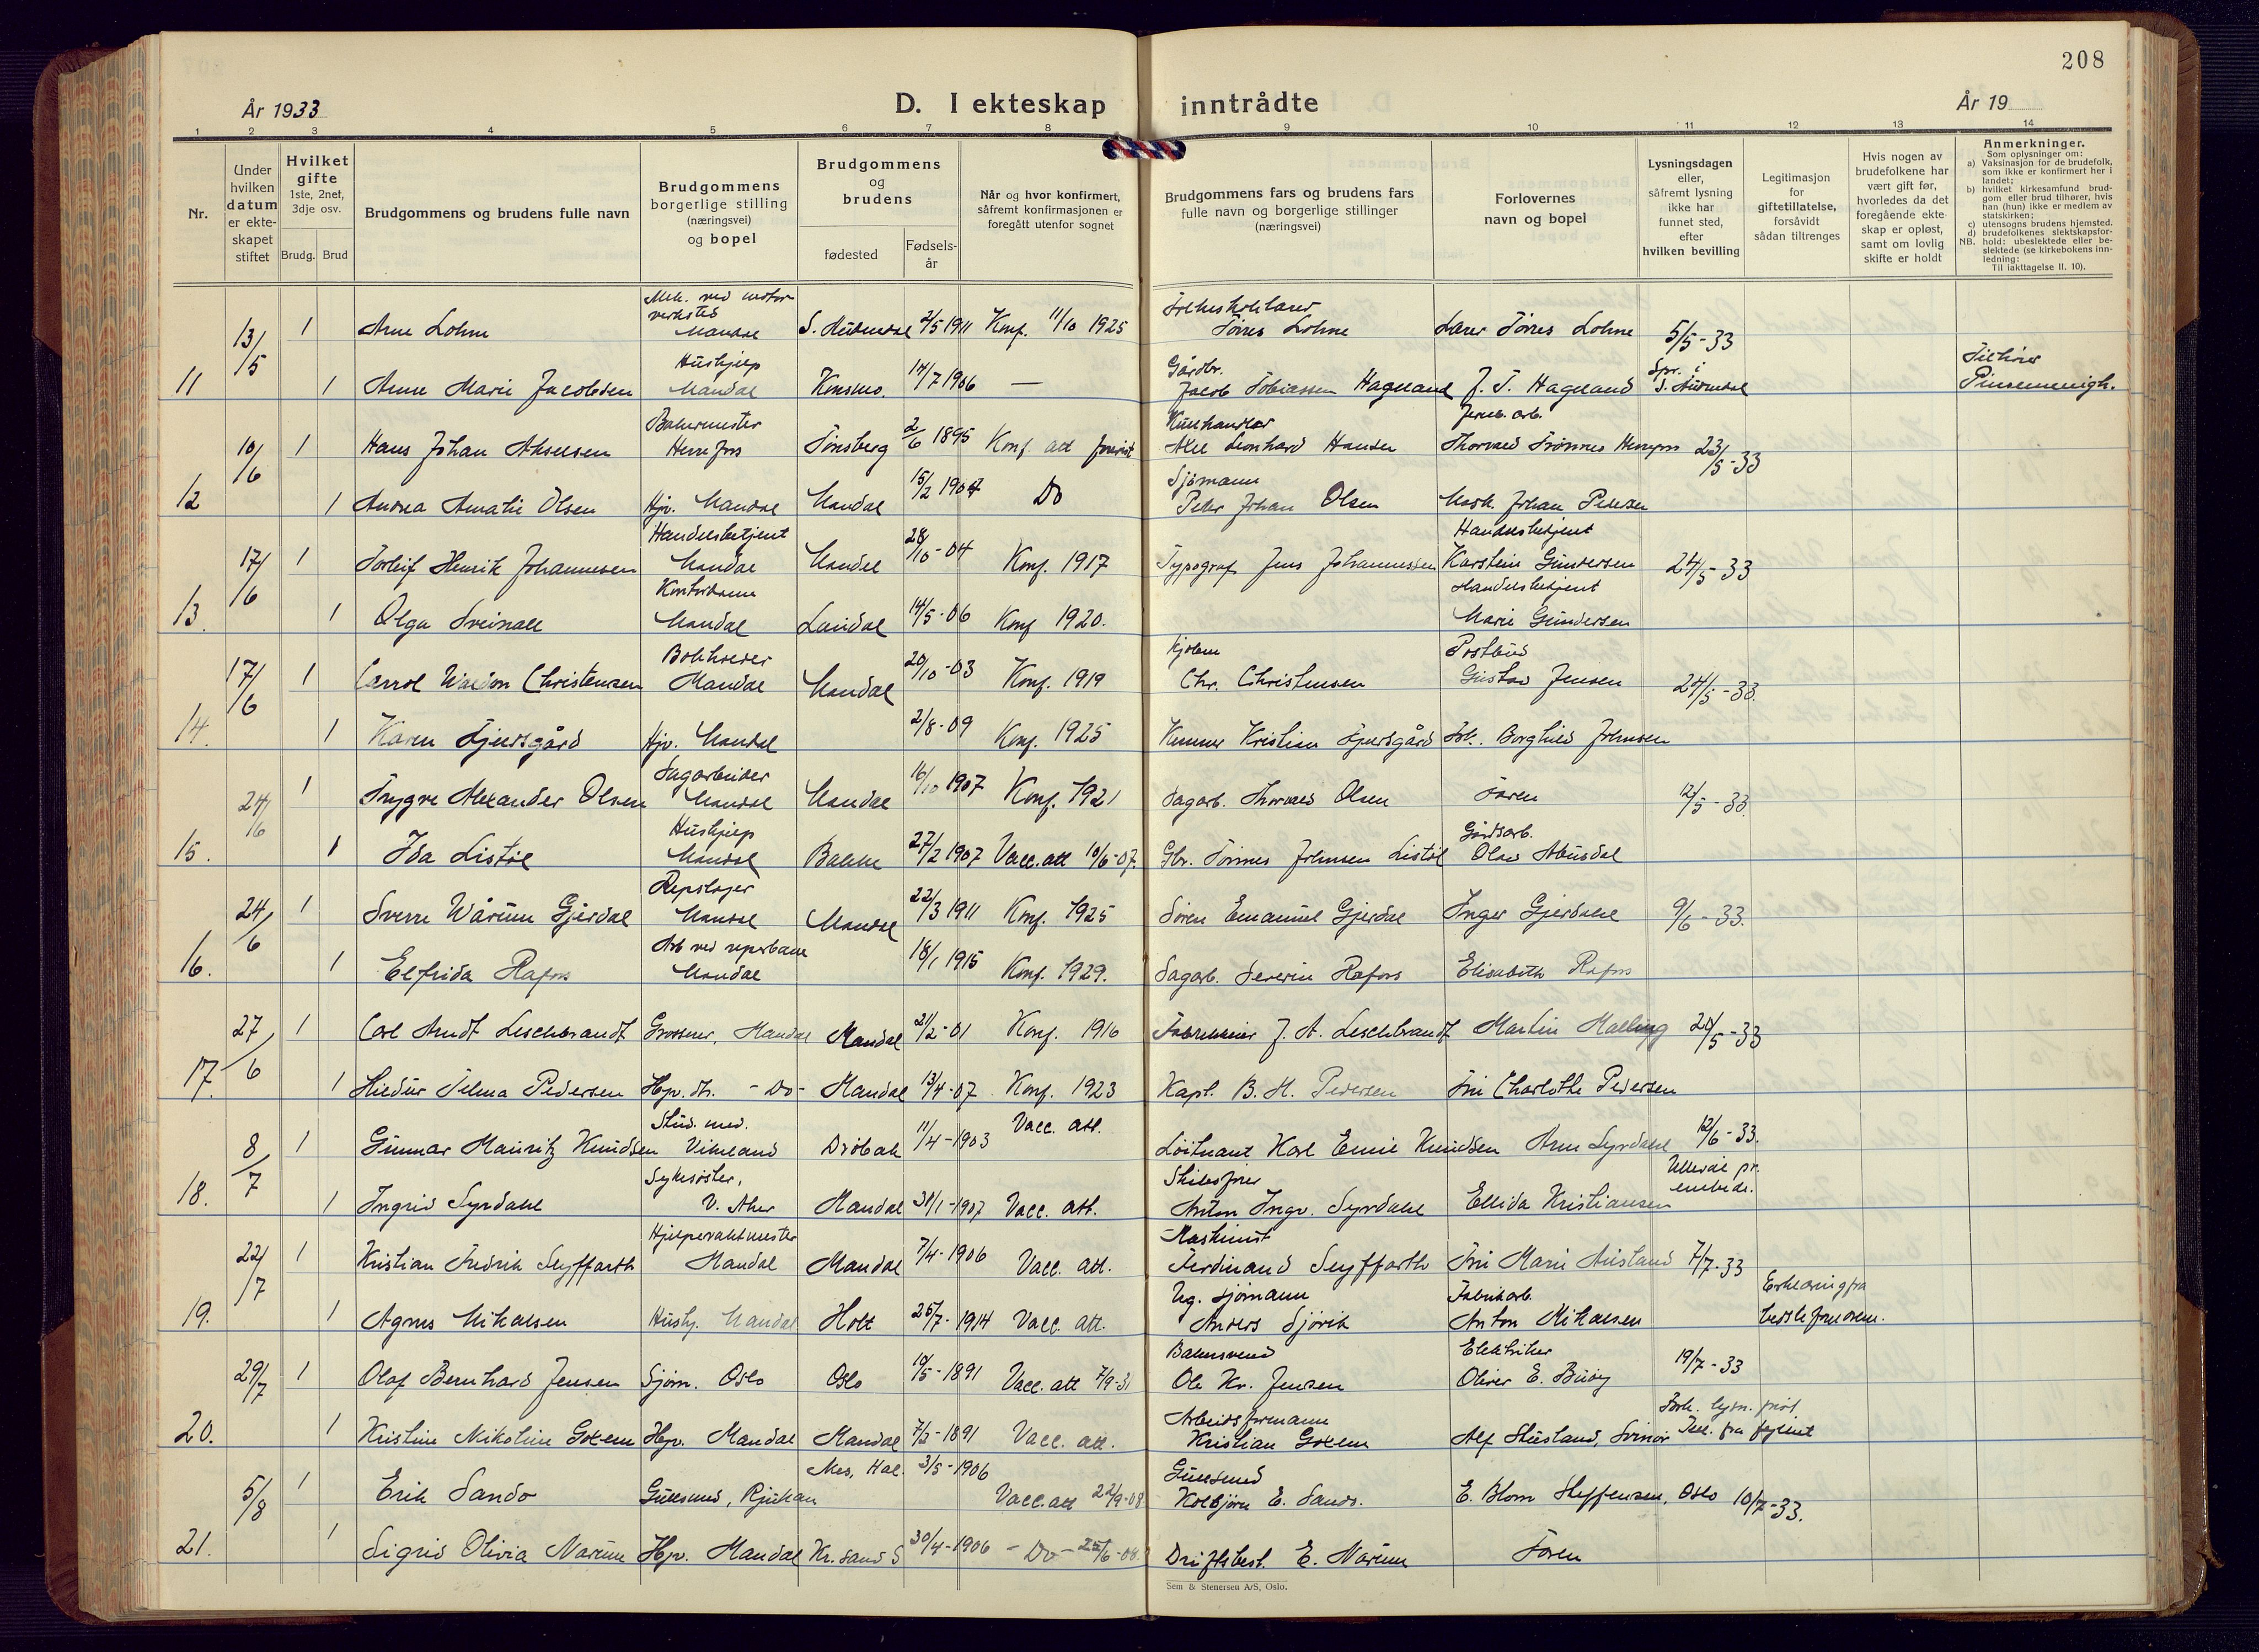 208
År 1933
D. I ekteskap inntrådte
År 19
1 2 3 4 5 6 7 8 9 10 11 12 13 14
Nr.
Under hvilken datum er ekteskapet stiftet
Hvilket gifte 1ste, 2net, 3dje osv.
Brudg. Brud
Brudgommens og brudens fulle navn
Brudgommens borgerlige stilling (næringsvei) og bopel
Brudgommens og brudens
fødested
Fødsels-år
Når og hvor konfirmert, såfremt konfirmasjonen er foregått utenfor sognet
Brudgommens fars og brudens fars fulle navn og borgerlige stillinger (næringsvei)
Forlovernes navn og bopel
Lysningsdagen eller, såfremt lysning ikke har funnet sted, efter hvilken bevilling
Legitimasjon for giftetillatelse, forsåvidt sådan tiltrenges
Hvis nogen av brudefolkene har vært gift før, hvorledes da det foregående ekteskap er opløst, samt om lovlig skifte er holdt
Anmerkninger.
Som oplysninger om:
a) Vaksinasjon for de brudefolk, som ikke er konfirmert her i landet;
b) hvilket kirkesamfund brudgom eller brud tilhører, hvis han (hun) ikke er medlem av statskirken;
c) utensogns brudens hjemsted.
d) brudefolkenes slektskapsforhold: ubeslektede eller beslektede (se kirkebokens innledning:
NB. Til iakttagelse II. 10).
13/5 1 Arne Lohne Mek. ved motorverksted Mandal S. Audnedal 2/5 1911 Konf. 11/10 1925 Tørres Lohne Lærer Tørres Lohne 5/5-33
11 1 Anne Marie Jacobsen Hushjelp Mandal Konsmo. 14/7 1906 — Gårdbr. Jacob Tobiassen Hageland J. T. Hageland Spr. i S. Audnedal Tilhører Pinsemenigh.
10/6 1 Hans Johan Akselsen Bakermester Herrefoss Tönsberg 2/6 1895 Konf. att forevist Aksel Leonhard Hansen Jernb. arb. Thorvald 23/5-33
12 1 Andrea Amalie Olsen Hjv. Mandal Mandal 15/2 1904 Do Sjömann Peder Johan Olsen Mask. Johan Pedersen
17/6 1 Torleif Henrik Johannesen Handelsbetjent Mandal Mandal 28/10-04 Konf. 1917 Typograf Jens Johannessen Handelsbetjent Karstein Gundersen 24/5-33
13. 1 Olga Sveinall Kontordame Mandal Laudal 14/5-06 Konf 1920. Handelsbetjent Marie Gundersen
17/6 1 Carrol Waldon Christensen Bokholder Mandal Mandal 20/10-03 Konf. 1919 Chr. Christensen Postbud Gustav Jensen 24/5-33.
14. 1 Karen Fjeldsgård Hjv. Mandal 2/8-09 Konf. 1925 Kristian Fjeldsgård Borghild Johnsen
24/6 1 Trygve Alexander Olsen Sagarbeider Mandal Mandal 16/10 1907 Konf. 1921 Sagarb. Thorvald Olsen Faren 12/5-33
15. 1 Ida Listøl Hushjelp Mandal Bakke 27/2 1907 Vacc. att 10/6-07. Gbr. Tönnes Johnsen Listøl Gårdsarb. Olav Abusdal
24/6 1 Sverre Wårum Gjerdal Repslager Mandal Mandal 22/3 1911 Konf. 1925 Sören Emanuel Gjerdal Inger Gjerdahl 9/6-33.
16. 1 Elfrida Rafoss Arb ved reperbane Mandal 18/1 1915 Konf. 1929. Sagarb. Severin Rafoss Elisabeth Rafoss
27/6 1 Carl Arndt Leschbrandt Grosserer, Mandal Mandal 21/2-01 Konf. 1916 Fabrikkeier J. A. Leschbrandt Martin Malling 24/5-33
17. 1 Hildur Telma Pedersen Hjv. dtr. -Do- Mandal 13/4-07 Konf. 1923 Kapt. B. H. Pedersen Fru Charlotte Pedersen
8/7 1 Gunnar Mauritz Knudsen Stud. med. Vikeland Dröbak 11/4-1903 Vacc. att. Löitnant Karl Emil Knudsen Arne Syrdahl 12/6-33.
18. 1 Ingrid Syrdahl Sykesöster, V. Aker Mandal 31/1-1907 Vacc. att. Skibsfører Anton Ingv. Syrdahl Ellida Kristiansen Ullevål pr. embede.
22/7 1 Kristian Fredrik Seyffarth Hjelpevaktmester Mandal Mandal 7/4-1906 Vacc. att. Maskinist Ferdinand Seyffarth Fru Marie Ausland 7/7-33
19. 1 Agnes Mikalsen Hushj. Mandal Holt 25/7-1914 Vacc. att. Ug. sjömann Anders Sjövik Fabrikarb. Anton Mikalsen Erklæring fra
29/7 1 Olaf Bernhard Jensen Sjöm. Oslo Oslo 10/5-1891 Vacc. att 7/9-31 Bakersvend Ole Kr. Jensen Elektriker Oliver E. Buöy 19/7-33
20. 1 Kristine Nikoline Gotzen Hjv. Mandal Mandal 7/2-1891 Vacc. att. Arbeidsformann Kristian Gotzen Alf Skusland, Svinör
5/8 1 Erik Sandö Gullsmed, Rjukan Nes, Hal. 3/5-1906 Vacc. att 22/9-08 Gullsmed Kolbjörn E. Sandö. E. Blom Steffensen, Oslo 10/7-33.
21. 1 Sigrid Olivia Narum Hjv. Mandal Kr. sand S 30/4-1906 -Do- 25/6-08. Driftsbest. E. Narum Faren
Sem & Stenersen A/S, Oslo.